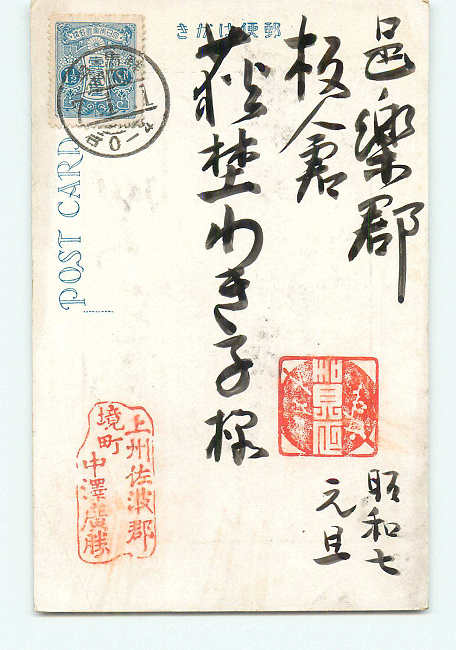 郵便はがき
邑楽郡
板倉
荻埜わき子様
昭和七
元旦
上州佐波郡
境町
中澤廣勝
POST CARD